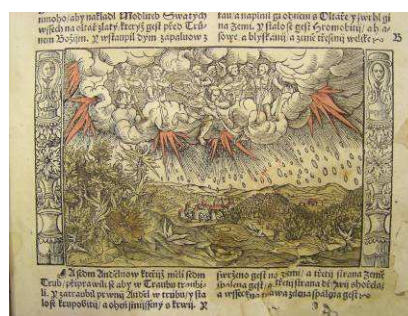 mnoho / aby nakladl Modliteb Swatých
wssech na oltař zlatý / kterýž gest před Trů-
nem Božijm. Y wstaupil dým zapaluow z
tau a naplnil gi ohněm s Oltáře y swrhl gi
na Zemi. Y stalo se gest Hromobití / ab
a blýskánij a země třesenij weliké
B
A sedm Andělůow kteřijž měli sedm
Trub / připrawili se aby w Traubu traubi-
li. Y zatraubil prwnij Anděl w trubu / y sta-
lo se krupobitij / a oheň smijssený s krwij. Y
swrženo gest na zemi / a třetij strana Země
spálena gest / a třetij strana
a wssecka tráwa zelená spálena gest